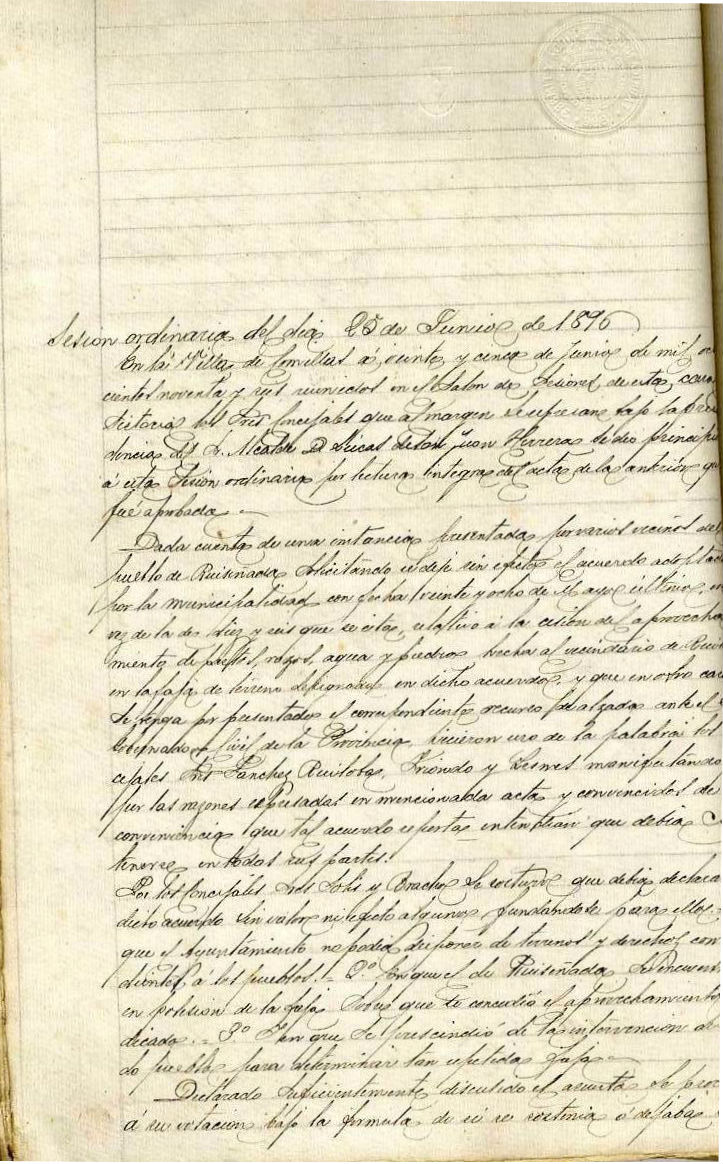 Sesion ordinaria del dia 25 de Junio de 1896
En la Villa de Comillas a veinte y cinco de Junio de mil, oc
cientos noventa y seis reunidos en el Salon de Sesiones de esta casa
sistorial los Sres Concejales que al margen se espresan bajo la pre
dencia del Sr. Alcalde D. Lucas de San Juan Herrera se dio principio
á esta Sesión ordinaria por lectura integra del acta de la anterior qu
fué aprobada.
Dada cuenta de una instancia presentada por varios vecinos del
pueblo de Ruiseñada solicitando se deje sin efecto el acuerdo adoptad
por la municipalidad con fecha veinte y ocho de Mayo último, en
vez de la de diez y seis que se cita, relativo á la cesión del aprovecha
miento de pastos, rozos, agua y piedras hecha al vecindario de Ruis
en la faja de terreno designada en dicho acuerdo, y que en otro cas
se tenga por presentado el correspondiente recurso de alzada ante el
Gobernador Civil de la Provincia, hicieron uso de la palabra los
cejales Sres Sanchez, Ruiloba, Oriondo y manifestando
por las razones espresadas en mencionada acta y convencidos de
conveniencia que tal acuerdo reporta entendian que debia
tenerse en todas sus partes.
Por los Concejales Sres Solis y Bracho se sostuvo que debia declara
dicho acuerdo sin valor ni efecto alguno fundandose para ello:
que el Ayuntamiento no podia disponer de terrenos y derechos
dientes á los pueblos. = 2º. En que el de Ruiseñada se encuen
en posesion de la faja sobre que se concedió el aprovechamiento
dicado. = 3º Y en que se prescindió de la intervencion de
do pueblo para determinar tan repetida faja.
Declarado suficientemente discutido el asunto se proc
á su votacion bajo la formula de si se sostenia ó dejaba